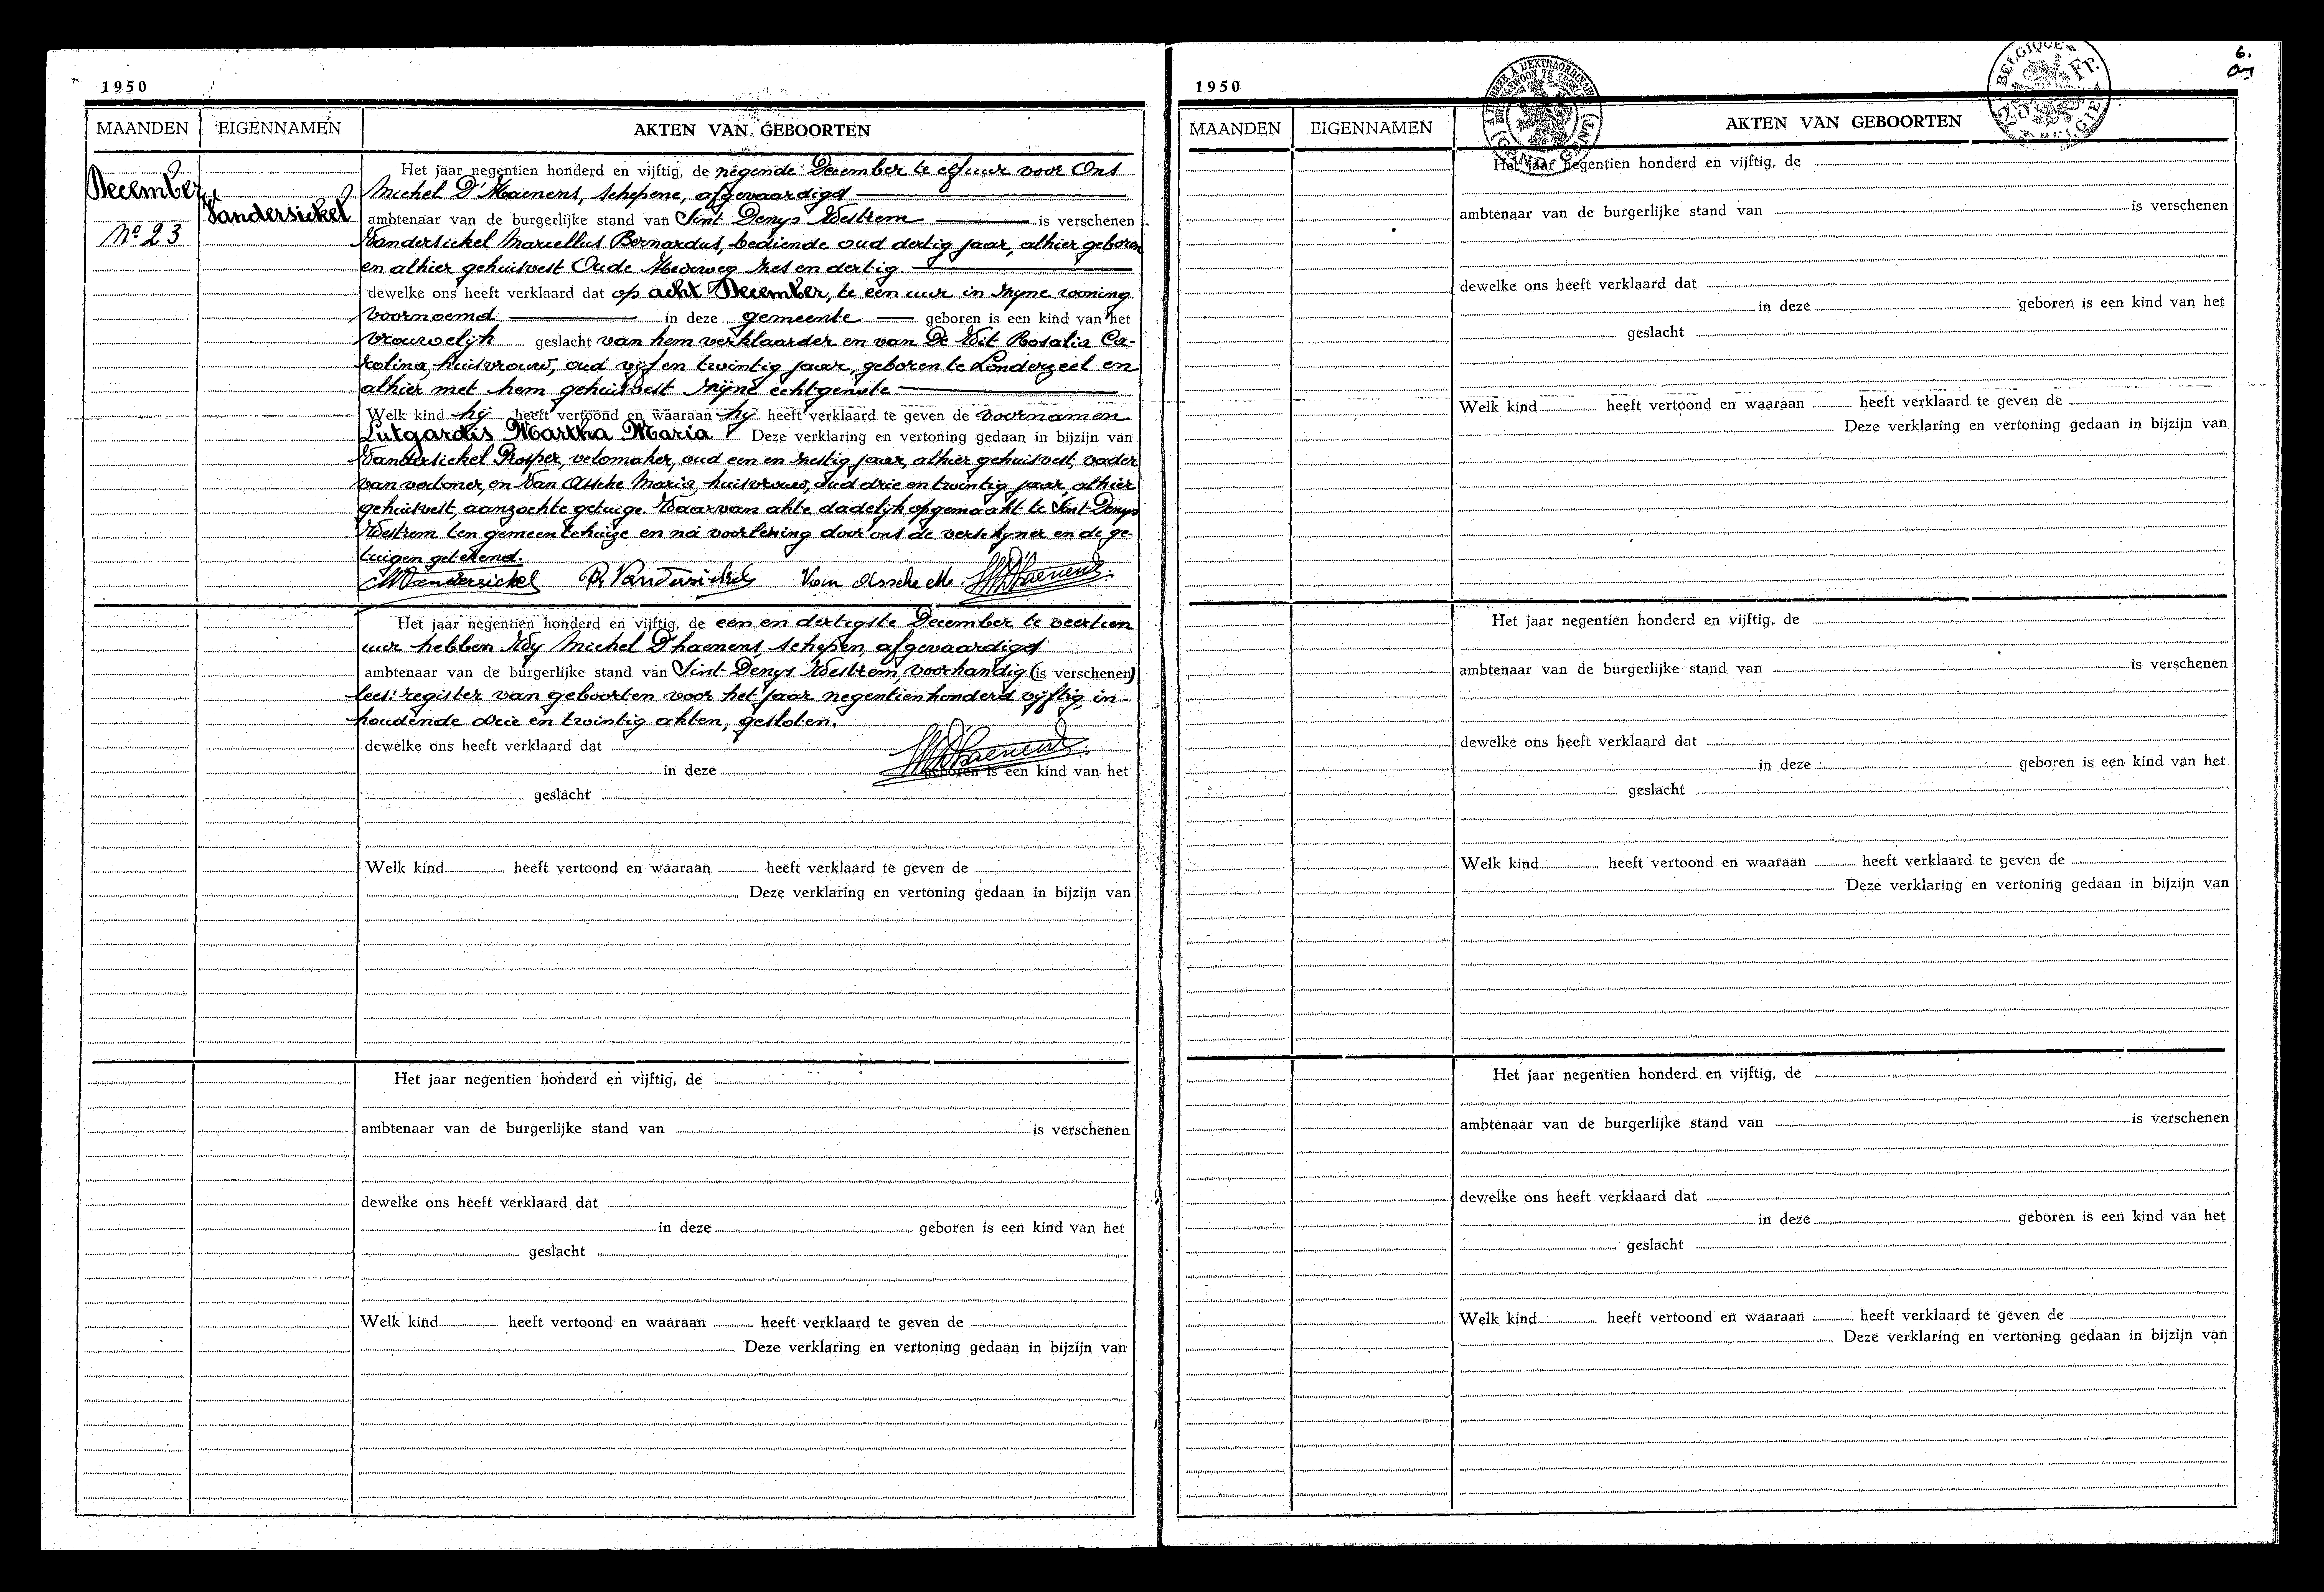 1950
MAANDEN EIGENNAMEN AKTEN VAN GEBOORTEN
December
Vandersickel
Nº 23
Het jaar negentien honderd en vijftig, de negende December te elf uur voor Ons
Michel D'Haenens, schepene, afgevaardigd
ambtenaar van de burgerlijke stand van Sint Denys Westrem is verschenen
Vandersickel Marcellus Bernardus, bediende oud dertig jaar, alhier geboren
en alhier gehuisvest Oude Heerweg zes en dertig
dewelke ons heeft verklaard dat op acht December, te een uur in zyne woning
voornoemd in deze gemeente geboren is een kind van het
vrouwelijk geslacht van hem verklaarder en van De Wit Rosalia Ca-
rolina, huisvrouw, oud vijf en twintig jaar, geboren te Londerzeel en
alhier met hem gehuisvest zyne echtgenote
Welk kind hij heeft vertoond en waaraan hij heeft verklaard te geven de voornamen
Lutgardis Martha Maria Deze verklaring en vertoning gedaan in bijzijn van
Vandersickel Prosper, velomaker, oud een en zestig jaar, alhier gehuisvest, vader
van vertoner, en Van Assche Maria, huisvrouw, oud drie en twintig jaar, alhier
gehuisvest, aanzochte getuige. Waarvan akte dadelijk opgemaakt te Sint Denys
Westrem ten gemeentehuize en na voorlezing door ons de verschyner en de ge-
tuigen getekend.
MVandersickel P. Vandersickel Van Assche M. MD'haenens
Het jaar negentien honderd en vijftig, de een en dertigste December te veertien
uur hebben Wy Michel D'haenens, schepen, afgevaardigd
ambtenaar van de burgerlijke stand van Sint Denys Westrem, voorhandig (is verschenen)
lees: register van geboorten voor het jaar negentienhonderd vijftig, in-
houdende drie en twintig akten, gesloten.
MD'haenens
dewelke ons heeft verklaard dat
in deze geboren is een kind van het
geslacht
Welk kind heeft vertoond en waaraan heeft verklaard te geven de
Deze verklaring en vertoning gedaan in bijzijn van
Het jaar negentien honderd en vijftig, de
ambtenaar van de burgerlijke stand van is verschenen
dewelke ons heeft verklaard dat
in deze geboren is een kind van het
geslacht
Welk kind heeft vertoond en waaraan heeft verklaard te geven de
Deze verklaring en vertoning gedaan in bijzijn van
6.
1950
BELGIQUE
Fr.
BELGIE
GAND GENT
MAANDEN EIGENNAMEN AKTEN VAN GEBOORTEN
Het jaar negentien honderd en vijftig, de
ambtenaar van de burgerlijke stand van is verschenen
dewelke ons heeft verklaard dat
in deze geboren is een kind van het
geslacht
Welk kind heeft vertoond en waaraan heeft verklaard te geven de
Deze verklaring en vertoning gedaan in bijzijn van
Het jaar negentien honderd en vijftig, de
ambtenaar van de burgerlijke stand van is verschenen
dewelke ons heeft verklaard dat
in deze geboren is een kind van het
geslacht
Welk kind heeft vertoond en waaraan heeft verklaard te geven de
Deze verklaring en vertoning gedaan in bijzijn van
Het jaar negentien honderd en vijftig, de
ambtenaar van de burgerlijke stand van is verschenen
dewelke ons heeft verklaard dat
in deze geboren is een kind van het
geslacht
Welk kind heeft vertoond en waaraan heeft verklaard te geven de
Deze verklaring en vertoning gedaan in bijzijn van